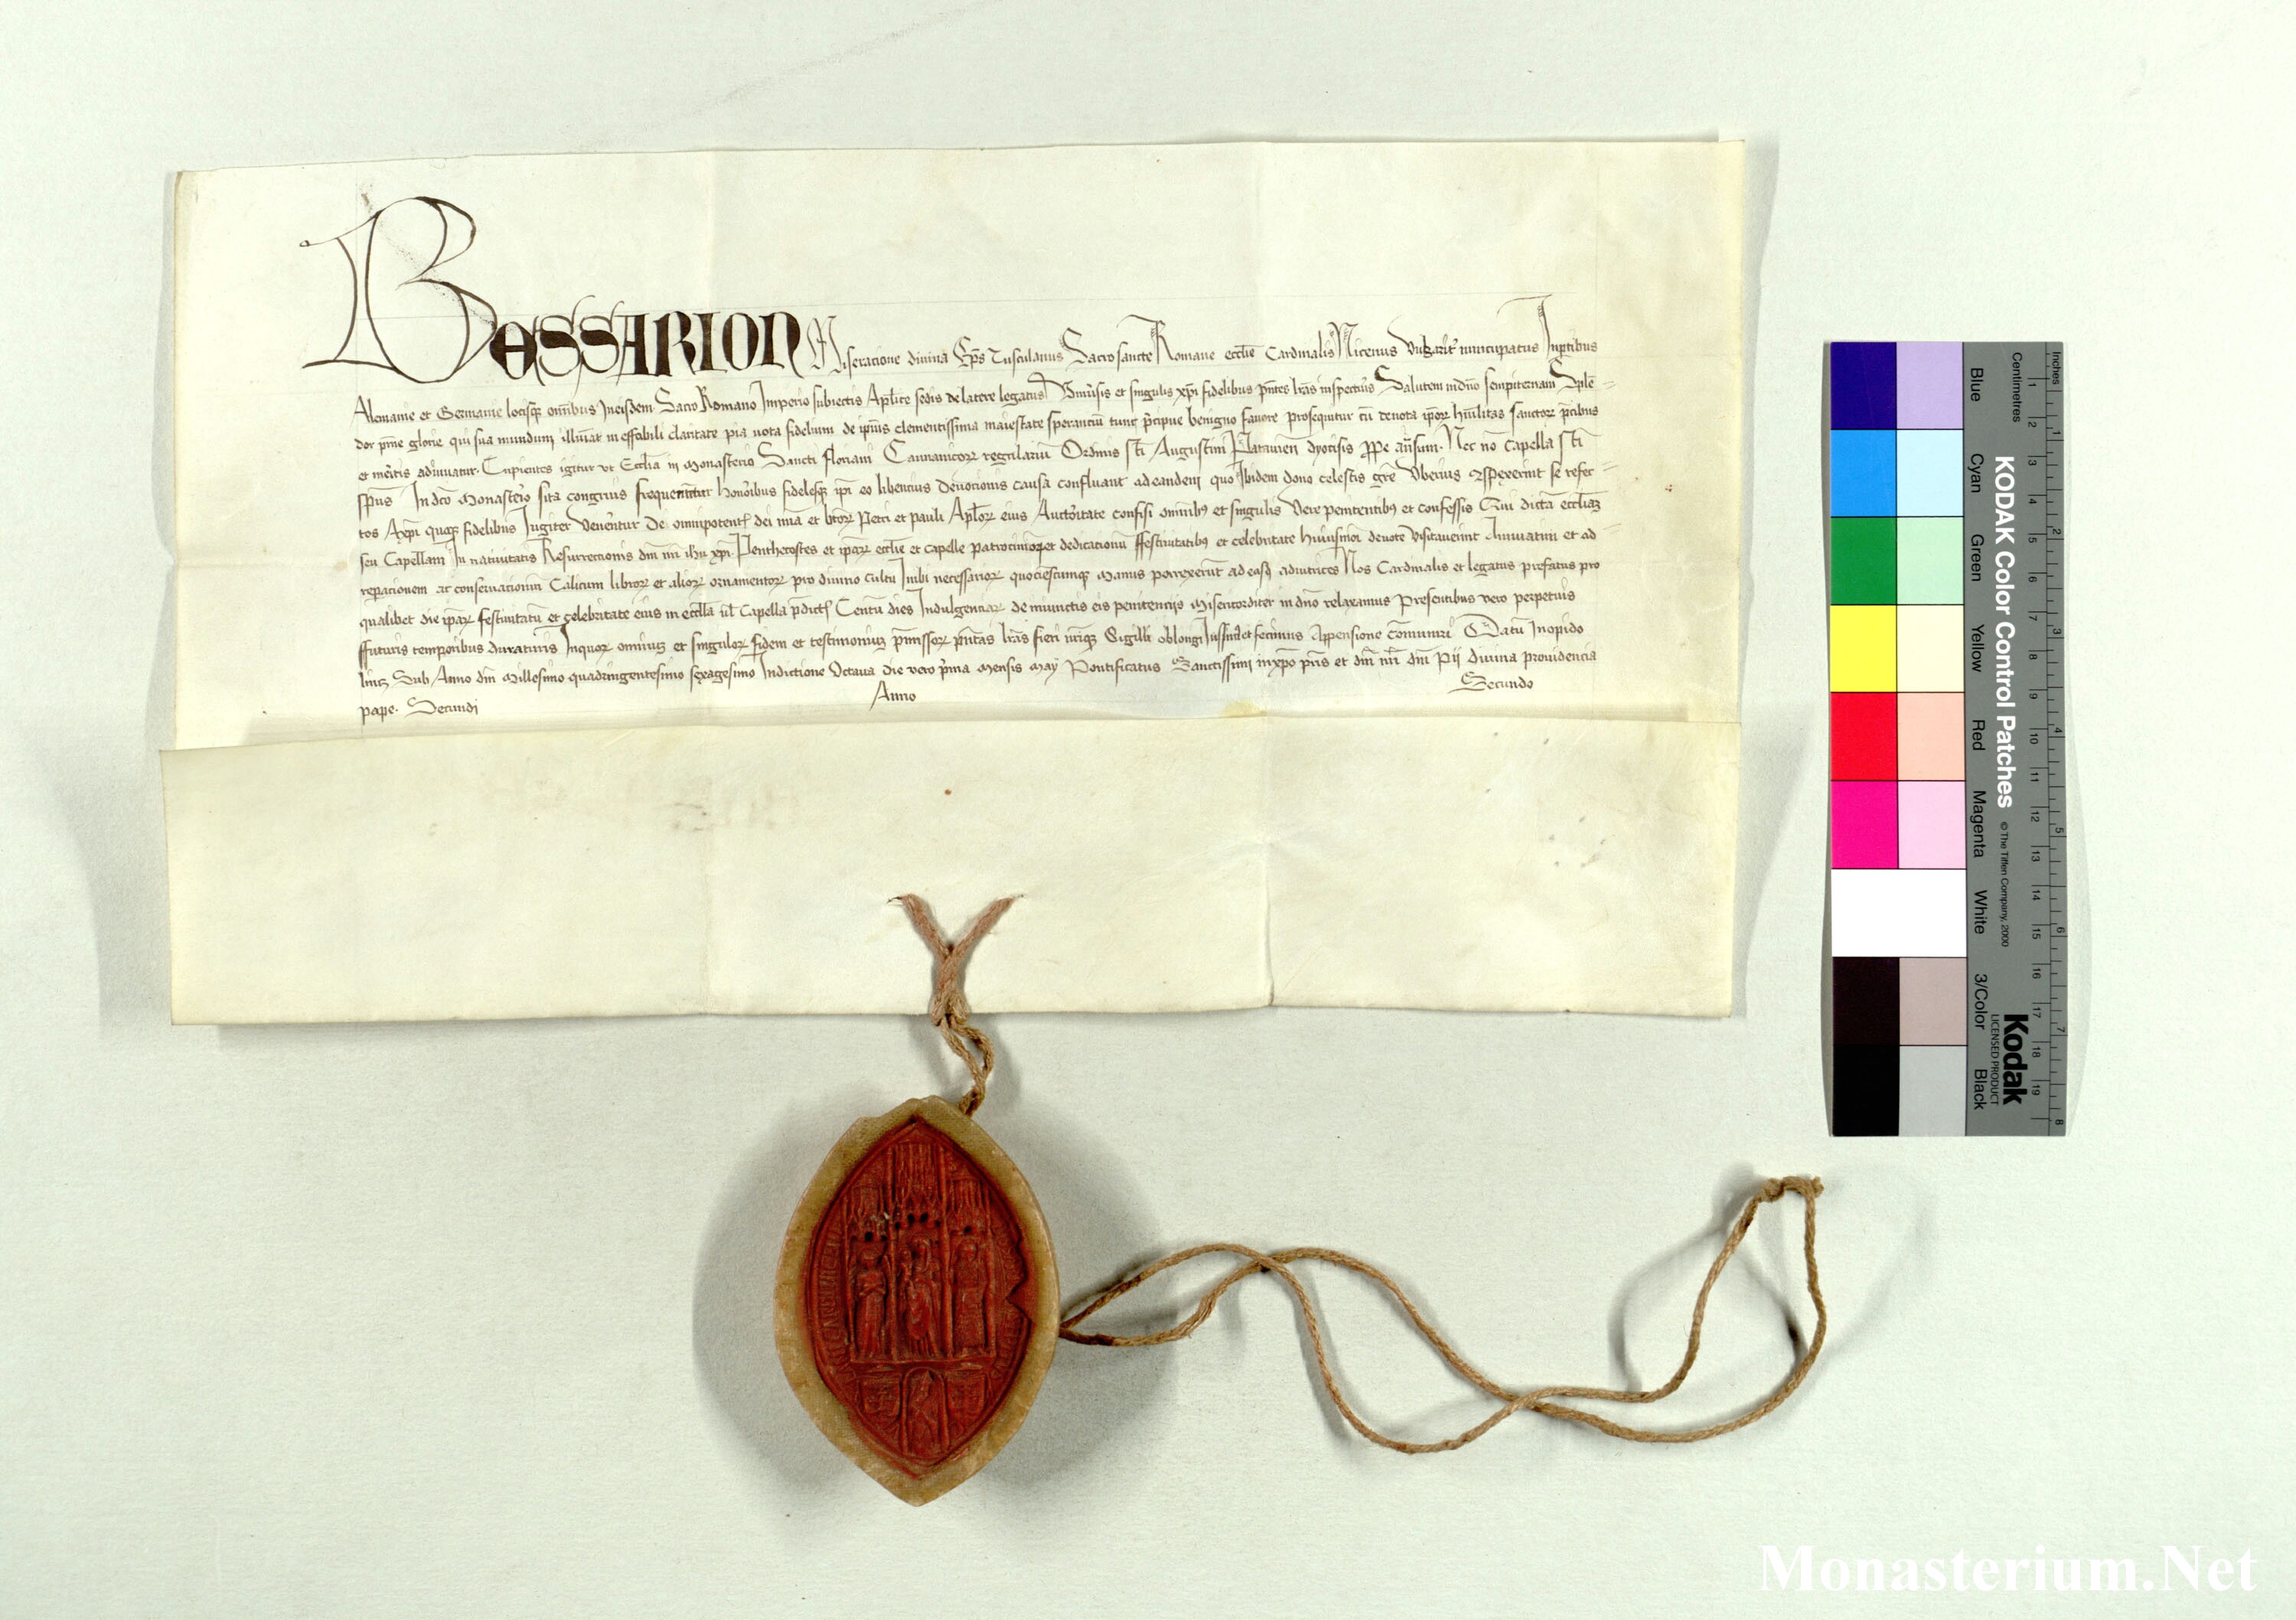 BESSARION Miseracione diuina Ep̄s Tusculanus Sacrosancte Romane eccl̄ie Cardinalis Nicenus Vulgarit̓ nuncupatus In p̄rtibus
Alemanie et Germanie locisqꝫ om̄ibus Ineisdem Sacro Romano Imperio subiectis Apl̄ice sedis de latere legatus Vniu̓sis et singulis xp̄i fidelibus p̄ntes lr̄as inspectur̓ Salutem in dn̄o sempiternam Splē
dor pr̄ne glorie qui sua mundum illuīat ineffabili claritate pia vota fidelium de ip̄ius clementissima maiestate sperancīu tunc p̄cipue benigno fauore prosequitur cū deuota ip̄oꝝ hūilitas sanctoꝝ p̄cibus
et mēritis adiuuatur. Cupientes igitur vt Eccl̄ia in Monasterio Sancti Floriani Cannanicoꝝ regulariū Ordinis sc̄ti Augustini Patauien̄ dyocesis Nec nō Capella sc̄ti
sp̄ūs In dc̄o Monaster̓o sita congruis frequententur hono̓ribus fidelesqꝫ ip̄i eo libencius deuocionis causa confluant ad eandem quo Ibidem dono celestis gr̄e vberius ꝯspexerint se refec
tos Axp̄i quoqꝫ fidelibus Iugiter vene̓ntur De omnipotent̓ dei mīa et bt̄oꝝ Petri et pauli Apl̄oꝝ eius Aucto̓ritate confisi omnibꝫ et singulis Vere penitentibꝫ et confessis Qui dictā eccl̄iaꝫ
seu Capellam In natiuitatis Resurrectionis dn̄i nr̄i ih̄u xp̄i Penthecostes et ip̄aꝝ eccl̄ie et capelle patrocinioꝝ et dedicacionū ffestiuitatibꝫ et celebritate huiusmōi deuote visitauerint Annuatim et ad
reparacionem ac conseruacionem Calicum libroꝝ et alioꝝ ornamentoꝝ pro diuino cultu Inibi necessarioꝝ quociescunqꝫ Manus porrexerint ad easꝫ adiutrices Nos Cardinalis et legatus prefatus pro
qualibet die ip̄aꝝ festiuitatū et celebritate eius in eccl̄ia ul̄ Capella p̄dict̓ Centū dies Indulgenciaꝝ de iniunctis eis penitencijs Misericorditer in dn̄o relaxamus Presentibus vero perpetuis
ffuturis temporibus duraturis Inquoꝝ omniuꝫ et singuloꝝ fidem et testimoniuꝫ p̄missoꝝ p̄ntas lr̄as fieri nr̄iqꝫ Sigilli oblongi Iussimꝫ et fecimus Appensione cōmuniri Datū Inopido
lincz Sub Anno dn̄i Millesimo quadringentesimo sexagesimo Indictione Octaua die vero p̄ma Mensis May Pontificatus Sanctissimi inxp̄o pr̄is et dn̄i nr̄i dn̄i Pij diuina prouidencia
pape. Secundi Anno Secundo
KODAK Color Control Patches
© The Tiffen Company, 2000
Kodak
LICENSED PRODUCT
Inches
Centimetres
1 2 3 4 5 6 7 8
1 2 3 4 5 6 7 8 9 10 11 12 13 14 15 16 17 18 19
Blue
Cyan
Green
Yellow
Red
Magenta
White
3/Color
Black
Monasterium.Net